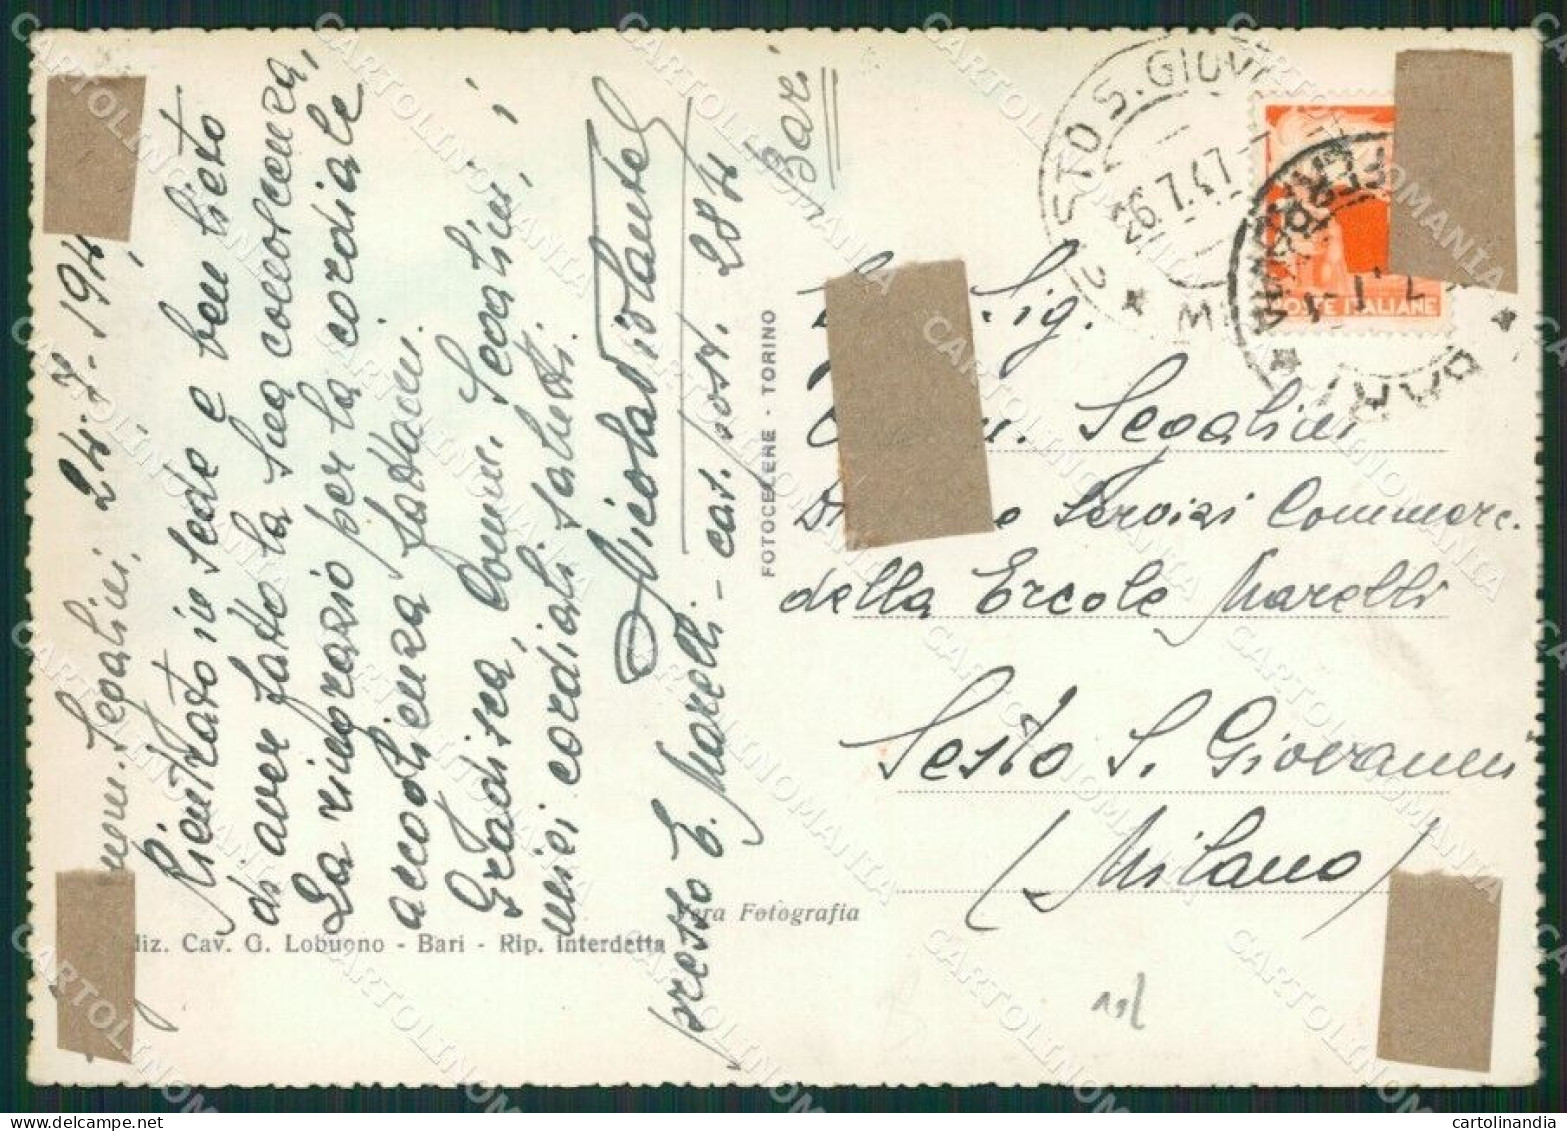 24-7-194
Segalini,
Rientrato in sede e ben lieto
di aver fatto la sua conoscenza,
La ringrazio per la cordiale
accoglienza fattami.
Gradisca, Comm. Segalini, i
miei cordiali saluti.
Nicola Violante
presso E. Marelli - cas. post. 284
Bari
FOTOCELERE - TORINO
Vera Fotografia
diz. Cav. G. Lobuono - Bari - Rip. Interdetta
STO S. GIOV
26.7.47
2
POSTE ITALIANE
BARI
FERROVIA
Sig.
Segalini
Servizi Commerc.
della Ercole Marelli
Sesto S. Giovanni
(Milano)
CARTOLINOMANIA
cartolinandia